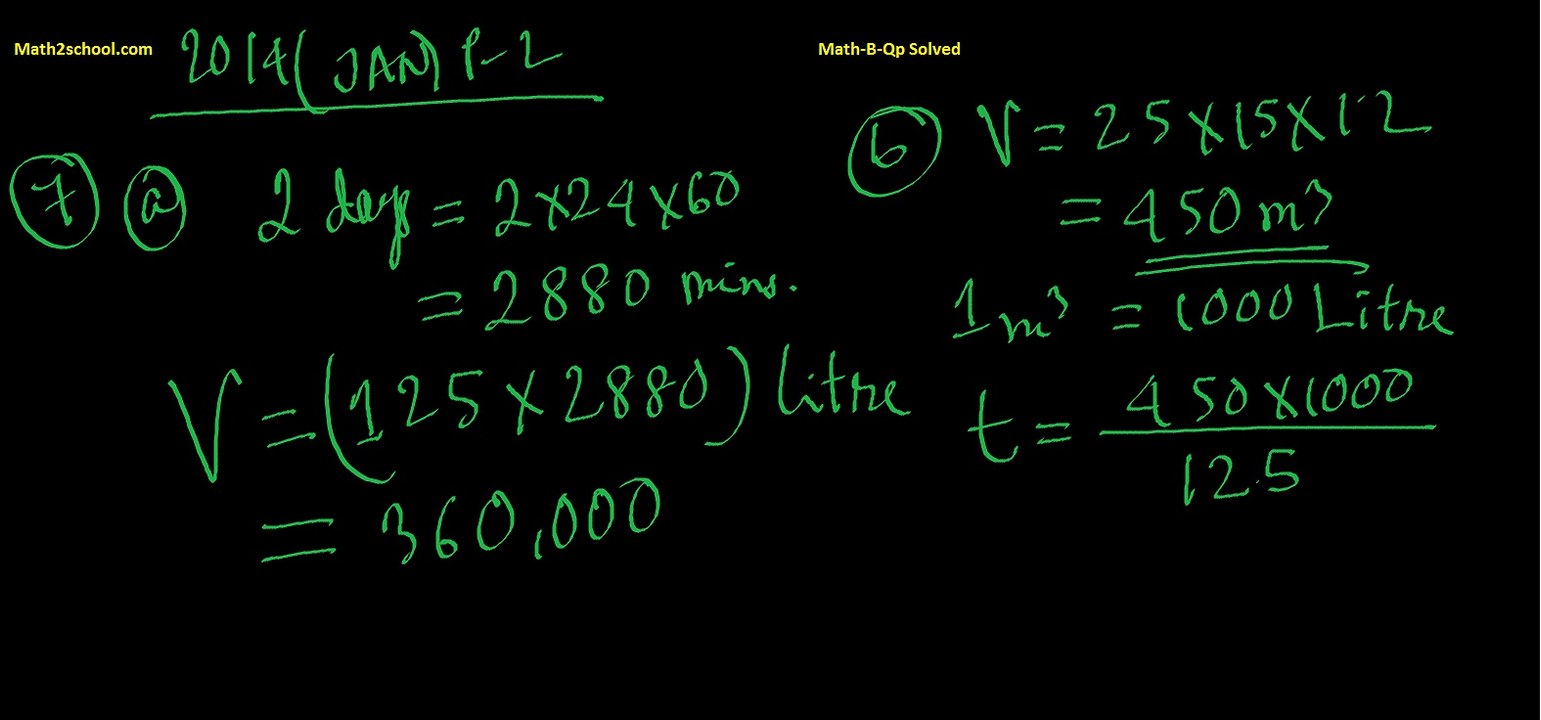 Math2school.com
2014(JAN) P-2
Math-B-Qp Solved
7 a 2 days = 2×24×60
= 2880 mins.
V = (125×2880) litre
= 360,000
b V = 25×15×1·2
= 450 m³
1 m³ = 1000 Litre
t = 450×1000
12.5